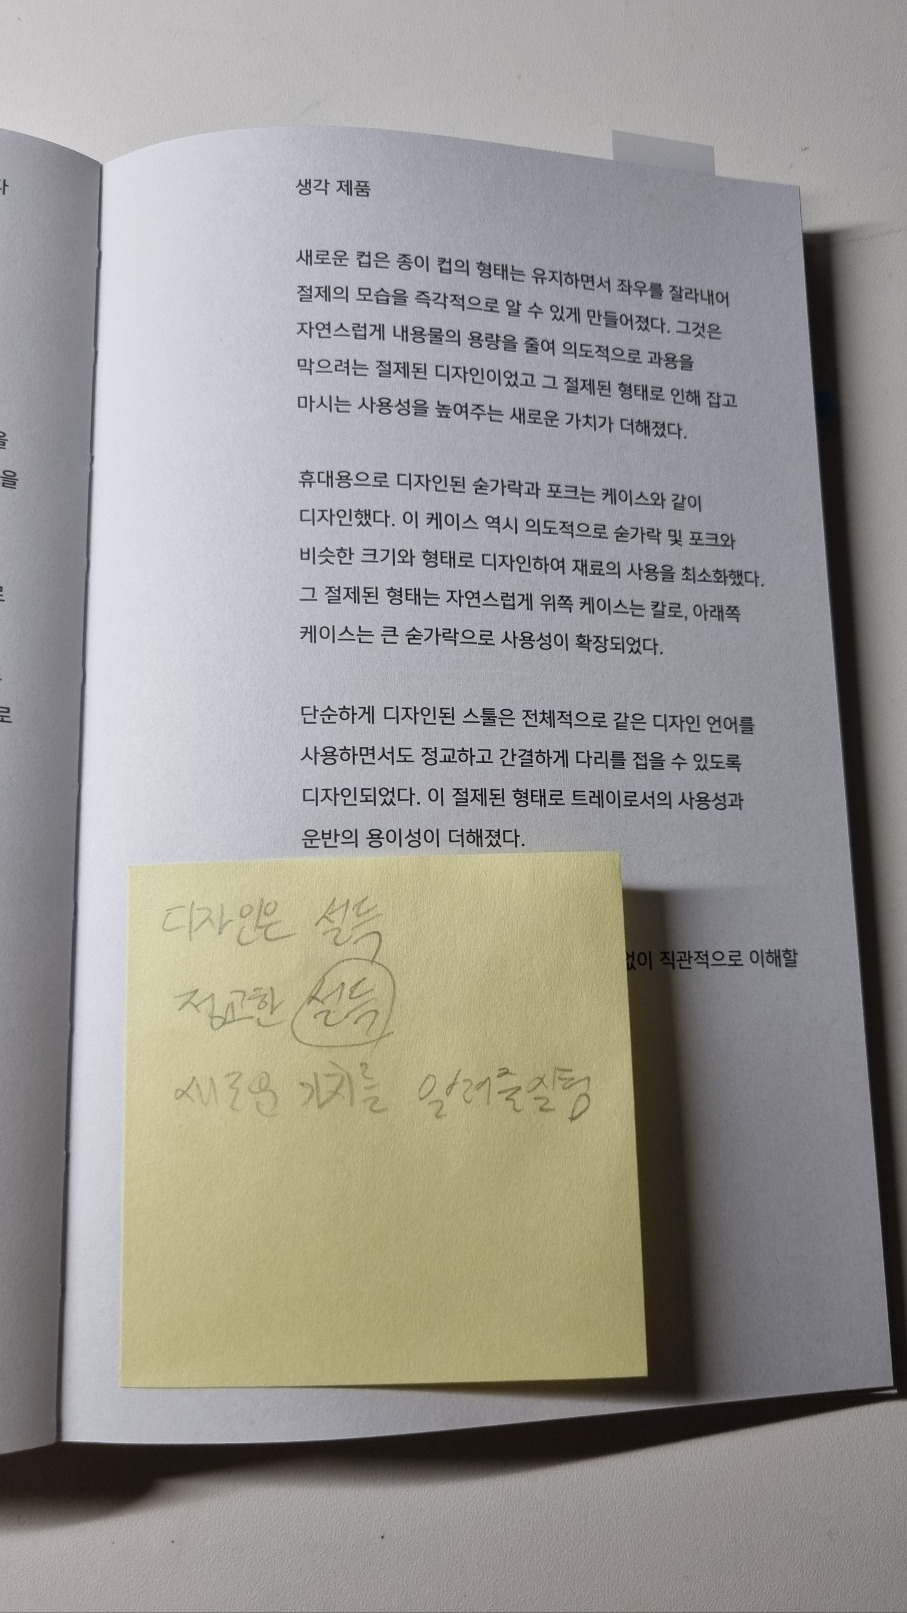 생각 제품
새로운 컵은 종이 컵의 형태는 유지하면서 좌우를 잘라내어
절제의 모습을 즉각적으로 알 수 있게 만들어졌다. 그것은
자연스럽게 내용물의 용량을 줄여 의도적으로 과용을
막으려는 절제된 디자인이었고 그 절제된 형태로 인해 잡고
마시는 사용성을 높여주는 새로운 가치가 더해졌다.
휴대용으로 디자인된 숟가락과 포크는 케이스와 같이
디자인했다. 이 케이스 역시 의도적으로 숟가락 및 포크와
비슷한 크기와 형태로 디자인하여 재료의 사용을 최소화했다.
그 절제된 형태는 자연스럽게 위쪽 케이스는 칼로, 아래쪽
케이스는 큰 숟가락으로 사용성이 확장되었다.
단순하게 디자인된 스툴은 전체적으로 같은 디자인 언어를
사용하면서도 정교하고 간결하게 다리를 접을 수 있도록
디자인되었다. 이 절제된 형태로 트레이로서의 사용성과
운반의 용이성이 더해졌다.
없이 직관적으로 이해할
디자인은 설득
정교한 설득
새로운 가치를 알려줄
을
을
로